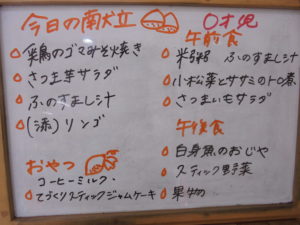 今日の献立
菜鶏のゴマみそ焼き
さつま芋サラダ
ふのすまし汁
(添)リンゴ
おやつ
コーヒーミルク・
てづくりスティックジャムケーキ
0才児
午前食
米粥 ふのすまし汁
小松菜とササミのトロ煮
さつまいもサラダ
午後食
白身魚のおじや
スティック野菜
果物